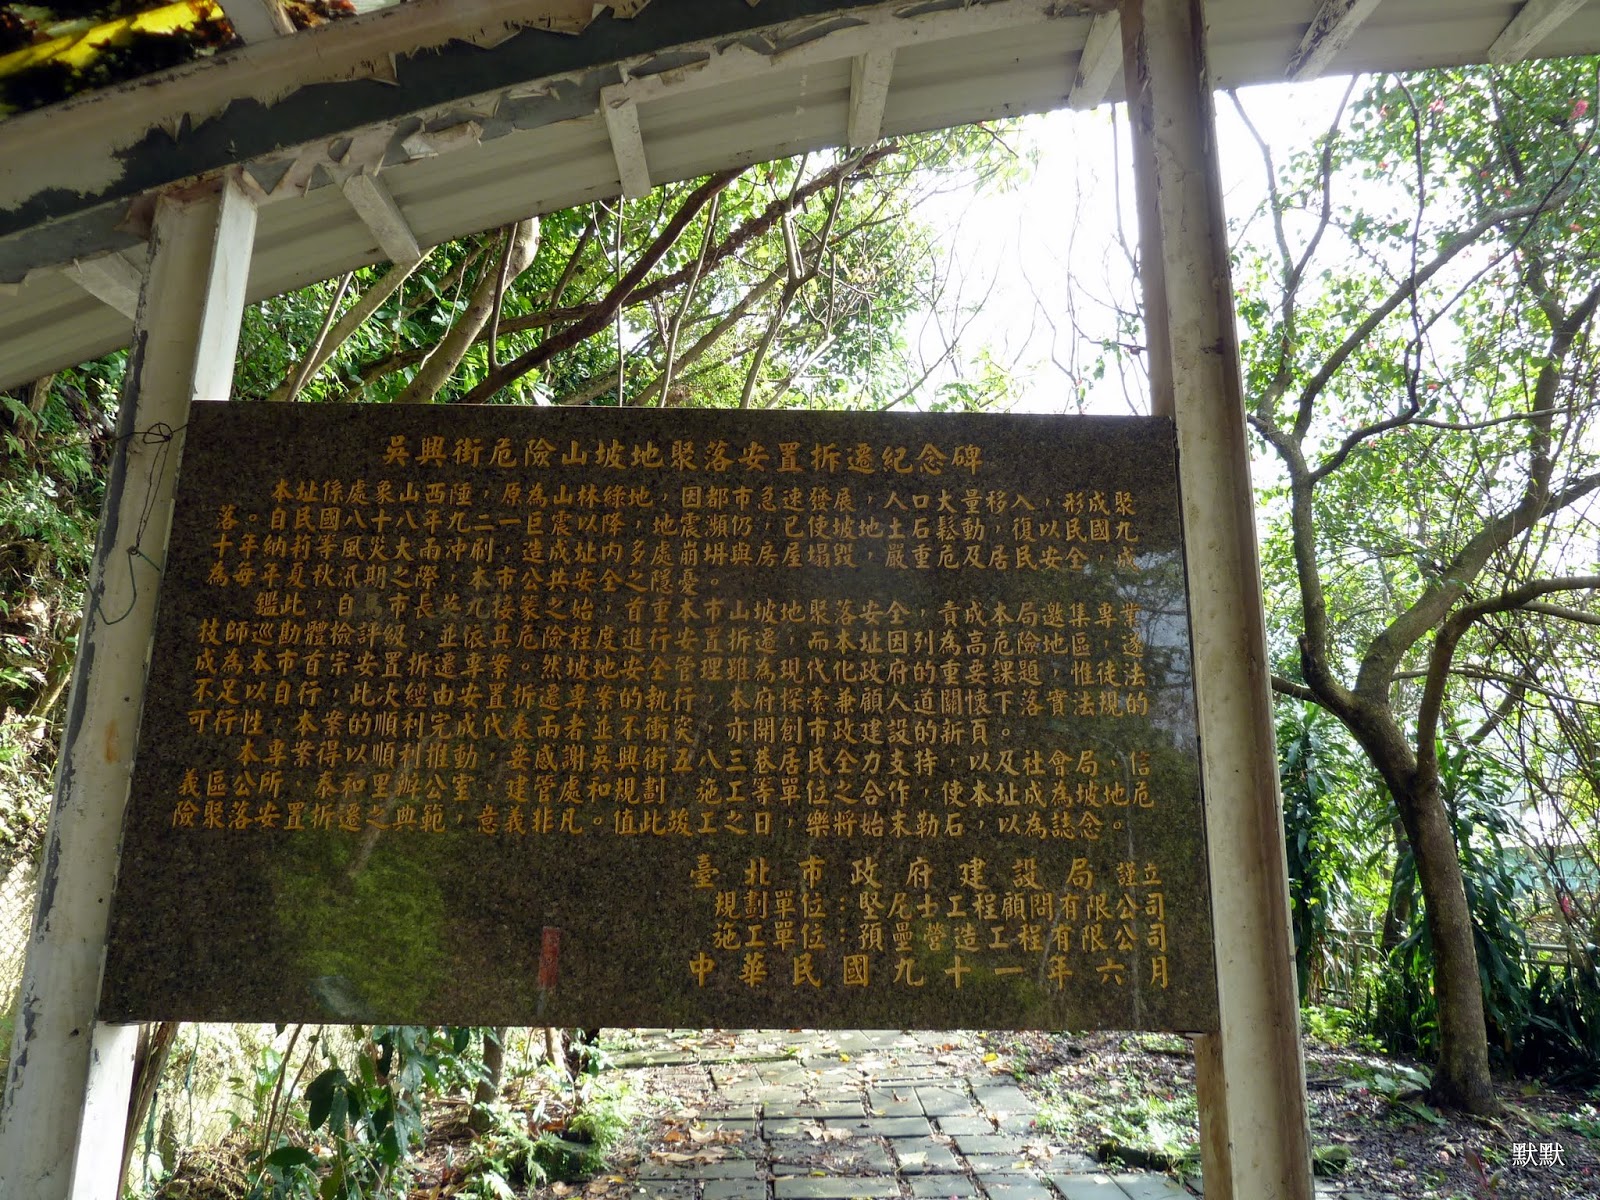 吳興街危險山坡地聚落安置拆遷紀念碑
本址係處象山西陲，原為山林綠地，因都市急速發展，人口大量移入，形成聚
落。自民國八十八年九二一巨震以降，地震瀕仍，已使坡地土石鬆動，復以民國九
十年納莉等風災大雨沖刷，造成址內多處崩坍與房屋塌毀，嚴重危及居民安全，成
為每年夏秋汛期之際，本市公共安全之隱憂。
鑑此，自馬市長英九接篆之始，首重本市山坡地聚落安全，責成本局邀集專業
技師巡勘體檢評級，並依其危險程度進行安置拆遷，而本址因列為高危險地區，遂
成為本市首宗安置拆遷專案。然坡地安全管理雖為現代化政府的重要課題，惟徒法
不足以自行，此次經由安置拆遷專案的執行，本府探索兼顧人道關懷下落實法規的
可行性，本案的順利完成代表兩者並不衝突，亦開創市政建設的新頁。
本專案得以順利推動，要感謝吳興街五八三巷居民全力支持，以及社會局、信
義區公所、泰和里辦公室、建管處和規劃、施工等單位之合作，使本址成為坡地危
險聚落安置拆遷之典範，意義非凡。值此竣工之日，樂將始末勒石，以為誌念。
臺北市政府建設局 謹立
規劃單位：堅尼士工程顧問有限公司
施工單位：預壘營造工程有限公司
中華民國九十一年六月
默默